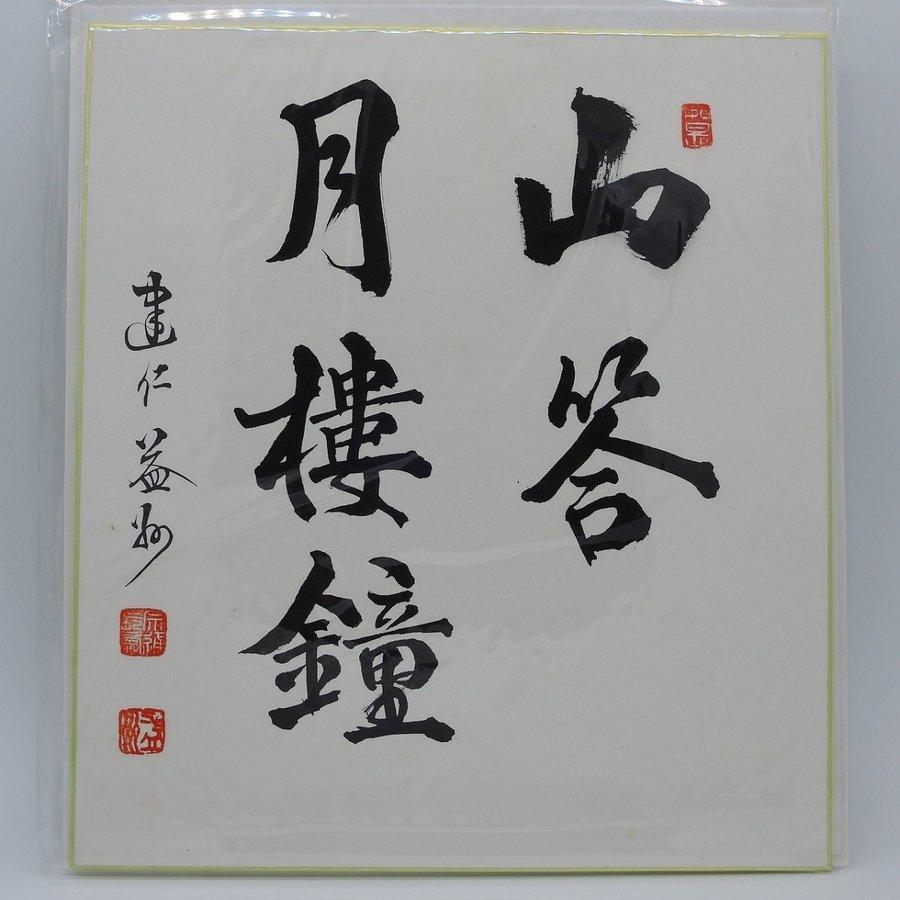 山答
月樓鐘
建仁 益州